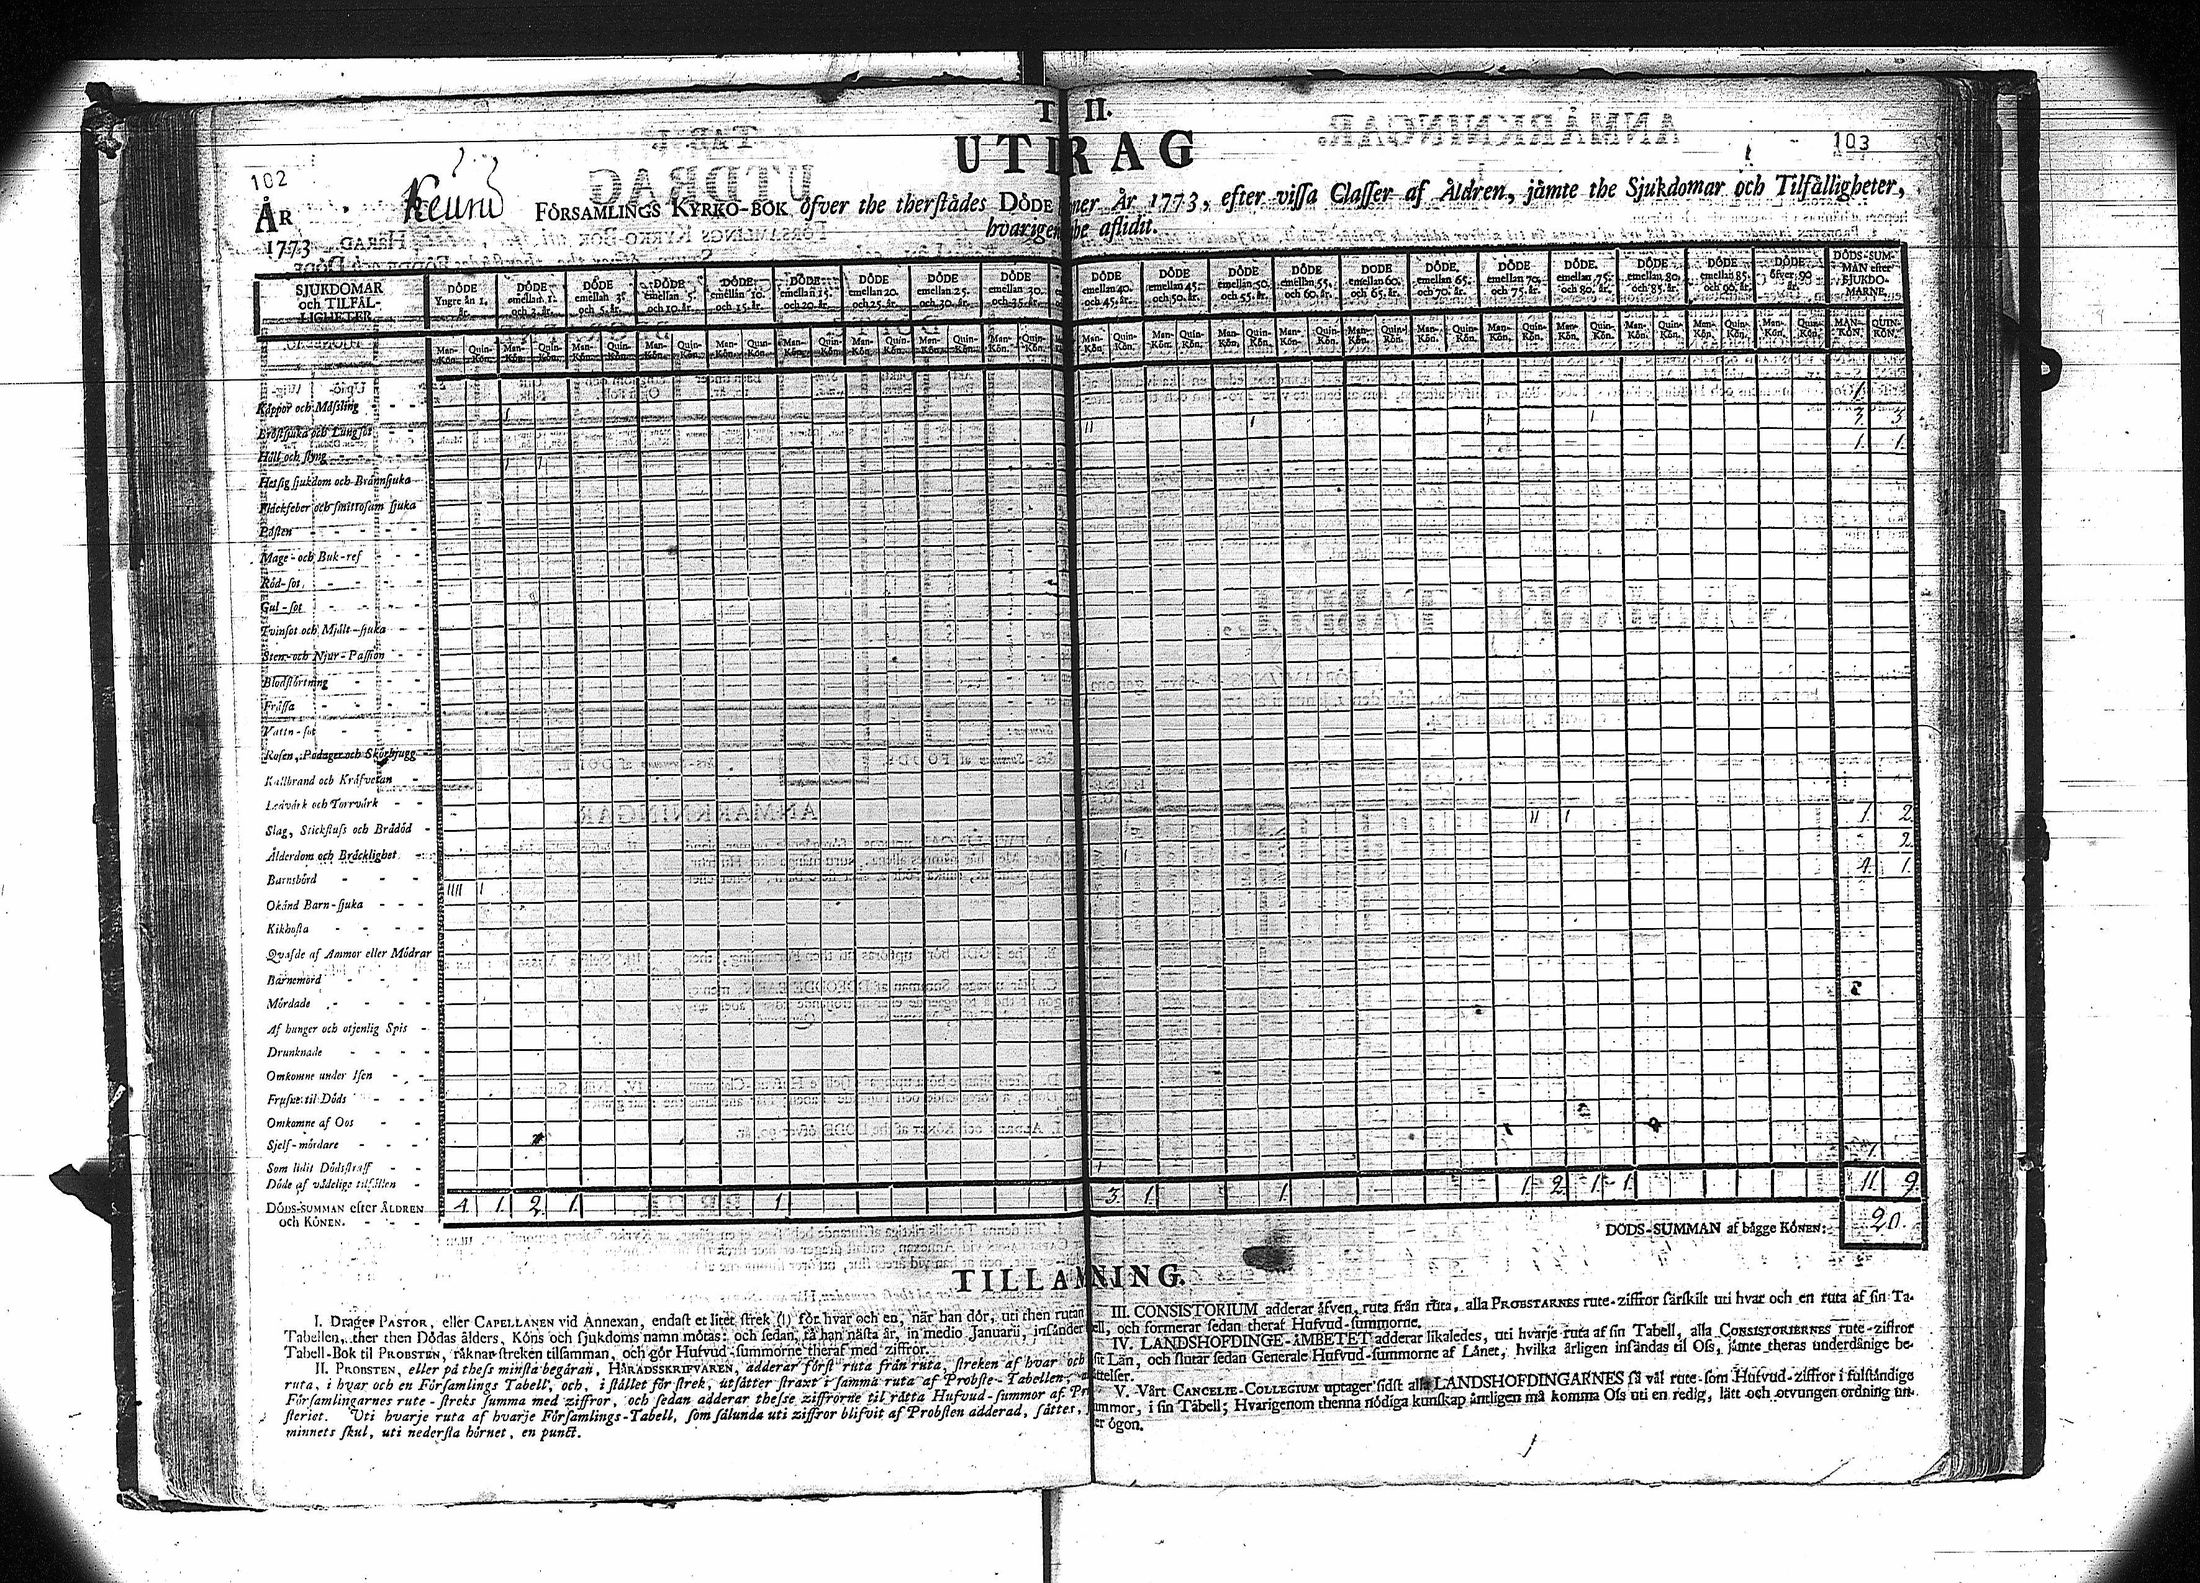 T II.
UTDRAG
102
103
ÅR
1773
FÖRSAMLINGS KYRKO-BOK öfver the therstädes DÖDE År 1773, efter vissa Classer af Åldren, jämte the Sjukdomar och Tilfälligheter,
hvarigen the aflidit.
SJUKDOMAR och TILFÄLLIGHETER
DÖDE Yngre än 1. år.
DÖDE emellan 1. och 3. år.
DÖDE emellan 3. och 5. år.
DÖDE emellan 5. och 10. år.
DÖDE emellan 10. och 15. år.
DÖDE emellan 15. och 20. år.
DÖDE emellan 20. och 25. år.
DÖDE emellan 25. och 30. år.
DÖDE emellan 30. och 35. år.
DÖDE emellan 40. och 45. år.
DÖDE emellan 45. och 50. år.
DÖDE emellan 50. och 55. år.
DÖDE emellan 55. och 60. år.
DÖDE emellan 60. och 65. år.
DÖDE emellan 65. och 70. år.
DÖDE emellan 70. och 75. år.
DÖDE emellan 75. och 80. år.
DÖDE emellan 80. och 85. år.
DÖDE emellan 85. och 90. år.
DÖDE öfver 90 år.
DÖDS-SUMMAN efter SJUKDOMARNE.
Man-Kön. Quin-Kön.
Koppor och Mässling 1.
Bröstsjuka och Lungsot 3. 3.
Håll och styng 1. 1.
Hetsig sjukdom och Brännsjuka
Fläckfeber och smittosam sjuka
Påsten
Mage- och Buk-ref
Röd-sot
Gul-sot
Tvinsot och Mjält-sjuka
Sten- och Njur-Passion
Blodstörtning
Frässa
Vattn-sot
Rosen, Podager och Skörbjugg
Kallbrand och Kräfvetan
Ledvärk och Torrvärk
Slag, Stickfluss och Brådöd 1. 2.
Ålderdom och Bräcklighet 2.
Barnsbörd 4. 1.
Okänd Barn-sjuka
Kikhosta
Qvafde af Ammor eller Mödrar
Barnemord
Mördade
Af hunger och otjenlig Spis
Drunknade
Omkomne under Isen
Frusne til Döds
Omkomne af Oos
Sjelf-mördare
Som lidit Dödsstraff 1.
Döde af vådelige tilfällen
DÖDS-SUMMAN efter ÅLDREN och KÖNEN. 4. 1. 2. 1. 1. 3. 1. 1. 1. 2. 1. 1. 11. 9.
DÖDS-SUMMAN af bägge KÖNEN: 20.
TILLÄMNING.
I. Drager PASTOR, eller CAPELLANEN vid Annexan, endast et litet strek (I) för hvar och en, när han dör, uti then rutan
Tabellen, ther then Dödas ålders, Köns och sjukdoms namn mötas: och sedan, få han nästa år, in medio Januarii, insänder
Tabell-Bok til PROBSTEN, räknar streken tilsamman, och gör Hufvud-summorne theraf med ziffror.
II. PROBSTEN, eller på thess minsta begäran, HÄRADSSKRIFVAREN, adderar först ruta från ruta, streken af hvar och
ruta, i hvar och en Församlings Tabell, och, i stället för strek, utsätter straxt i samma ruta af Probste-Tabellen,
Församlingarnes rute-streks summa med ziffror, och sedan adderar thesse ziffrorne til rätta Hufvud-summor af
steriet. Uti hvarje ruta af hvarje Församlings-Tabell, som sålunda uti ziffror blifvit af Probsten adderad, sättes,
minnets skul, uti nedersta hörnet, en punct.
III. CONSISTORIUM adderar äfven, ruta från ruta, alla PROBSTARNES rute-ziffror särskilt uti hvar och en ruta af sin Ta-
ell, och formerar sedan theraf Hufvud-summorne.
IV. LANDSHÖFDINGE-ÄMBETET adderar likaledes, uti hvarje ruta af sin Tabell, alla CONSISTORIERNES rute-ziffror
sit Län, och slutar sedan Generale Hufvud-summorne af Länet, hvilka årligen insändas til Oss, jämte theras underdånige be-
rättelser.
V. Vårt CANCELIE-COLLEGIUM uptager sidst alla LANDSHÖFDINGARNES så väl rute- som Hufvud-ziffror i fulständige
summor, i sin Tabell; Hvarigenom thenna nödiga kunskap äntligen må komma Oss uti en redig, lätt och otvungen ordning un-
er ögon.